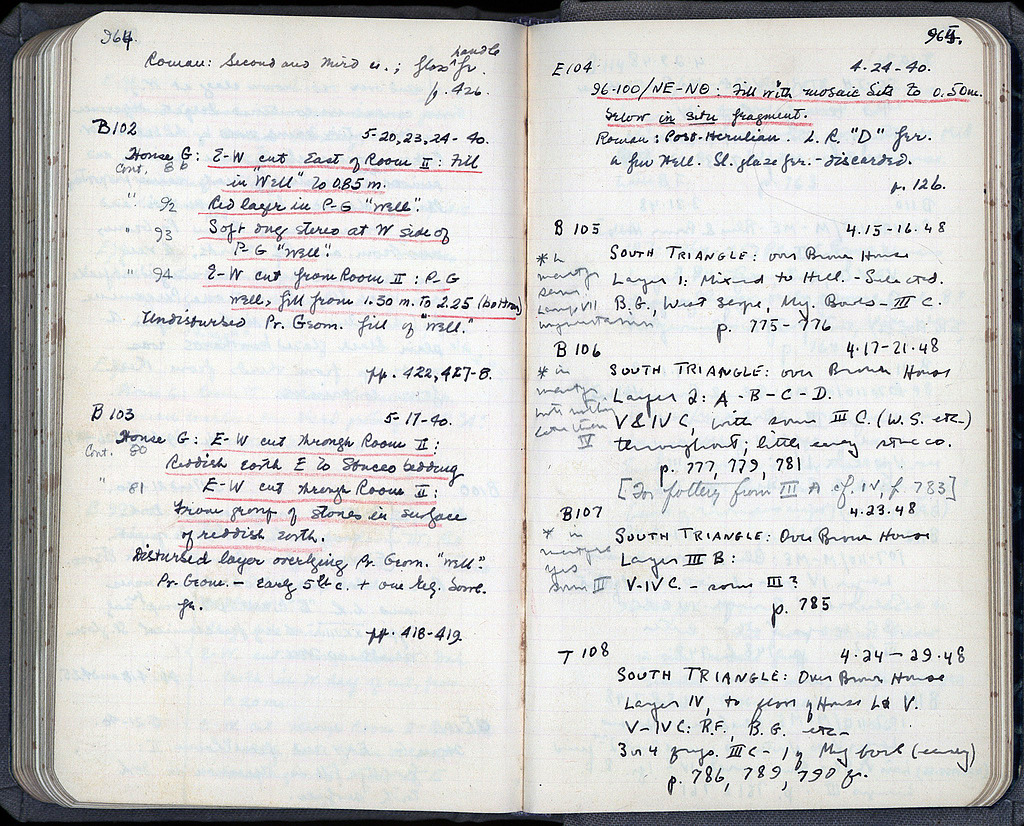 964.
Roman: Second and third c.; glass handle fr.
p. 426.
B 102
5-20, 23, 24-40.
House G: E-W cut East of Room II: Fill
Cont. 86
in "Well" to 0.85 m.
" 92 Red layer in P-G "Well".
" 93 Soft dug stereo at W side of
P-G "Well".
" 94 E-W cut from Room II: P-G
Well, fill from 1.50 m. to 2.25 (bottom)
Undisturbed Pr. Geom. fill of "Well."
pp. 422, 427-8.
B 103
5-17-40.
House G: E-W cut through Room II:
Cont. 80
Reddish earth E to Stucco bedding
" 81 E-W cut through Room II:
From group of stones in surface
of reddish earth.
Disturbed layer overlying Pr. Geom. "Well".
Pr. Geom. - early 5th c. + one Meg. bowl
fr.
pp. 418-419.
965.
E 104
4-24-40.
96-100/NE-NΘ: Fill with mosaic bits to 0.50m.
below in situ fragment.
Roman: Post-Herulian. L.R. "D" fr.
a few Hell. Sl. glaze frr. - discarded.
p. 126.
B 105
4.15-16.48
SOUTH TRIANGLE: over Brown House
Layer 1: Mixed to Hell. - Selected.
B.G., West Slope, Meg. Bowls - III C.
p. 775-776
B 106
4.17-21.48
SOUTH TRIANGLE: over Brown House
Layer 2: A-B-C-D.
V & IV C, with some III C. (W.S. etc.)
throughout; little early stucco.
p. 777, 779, 781
[For pottery from III A cf. IV, p. 783]
B 107
4.23.48
SOUTH TRIANGLE: Over Brown House
* in
Layer III B:
yes
some III
V-IV C. - some III?
p. 785
T 108
4.24-29.48
SOUTH TRIANGLE: Over Brown House
Layer IV, to floor of House L & V.
V-IV C: R.F., B.G. etc-
3 or 4 frags. III C - 1 of Meg bowl (early)
p. 786, 789, 790 fr.